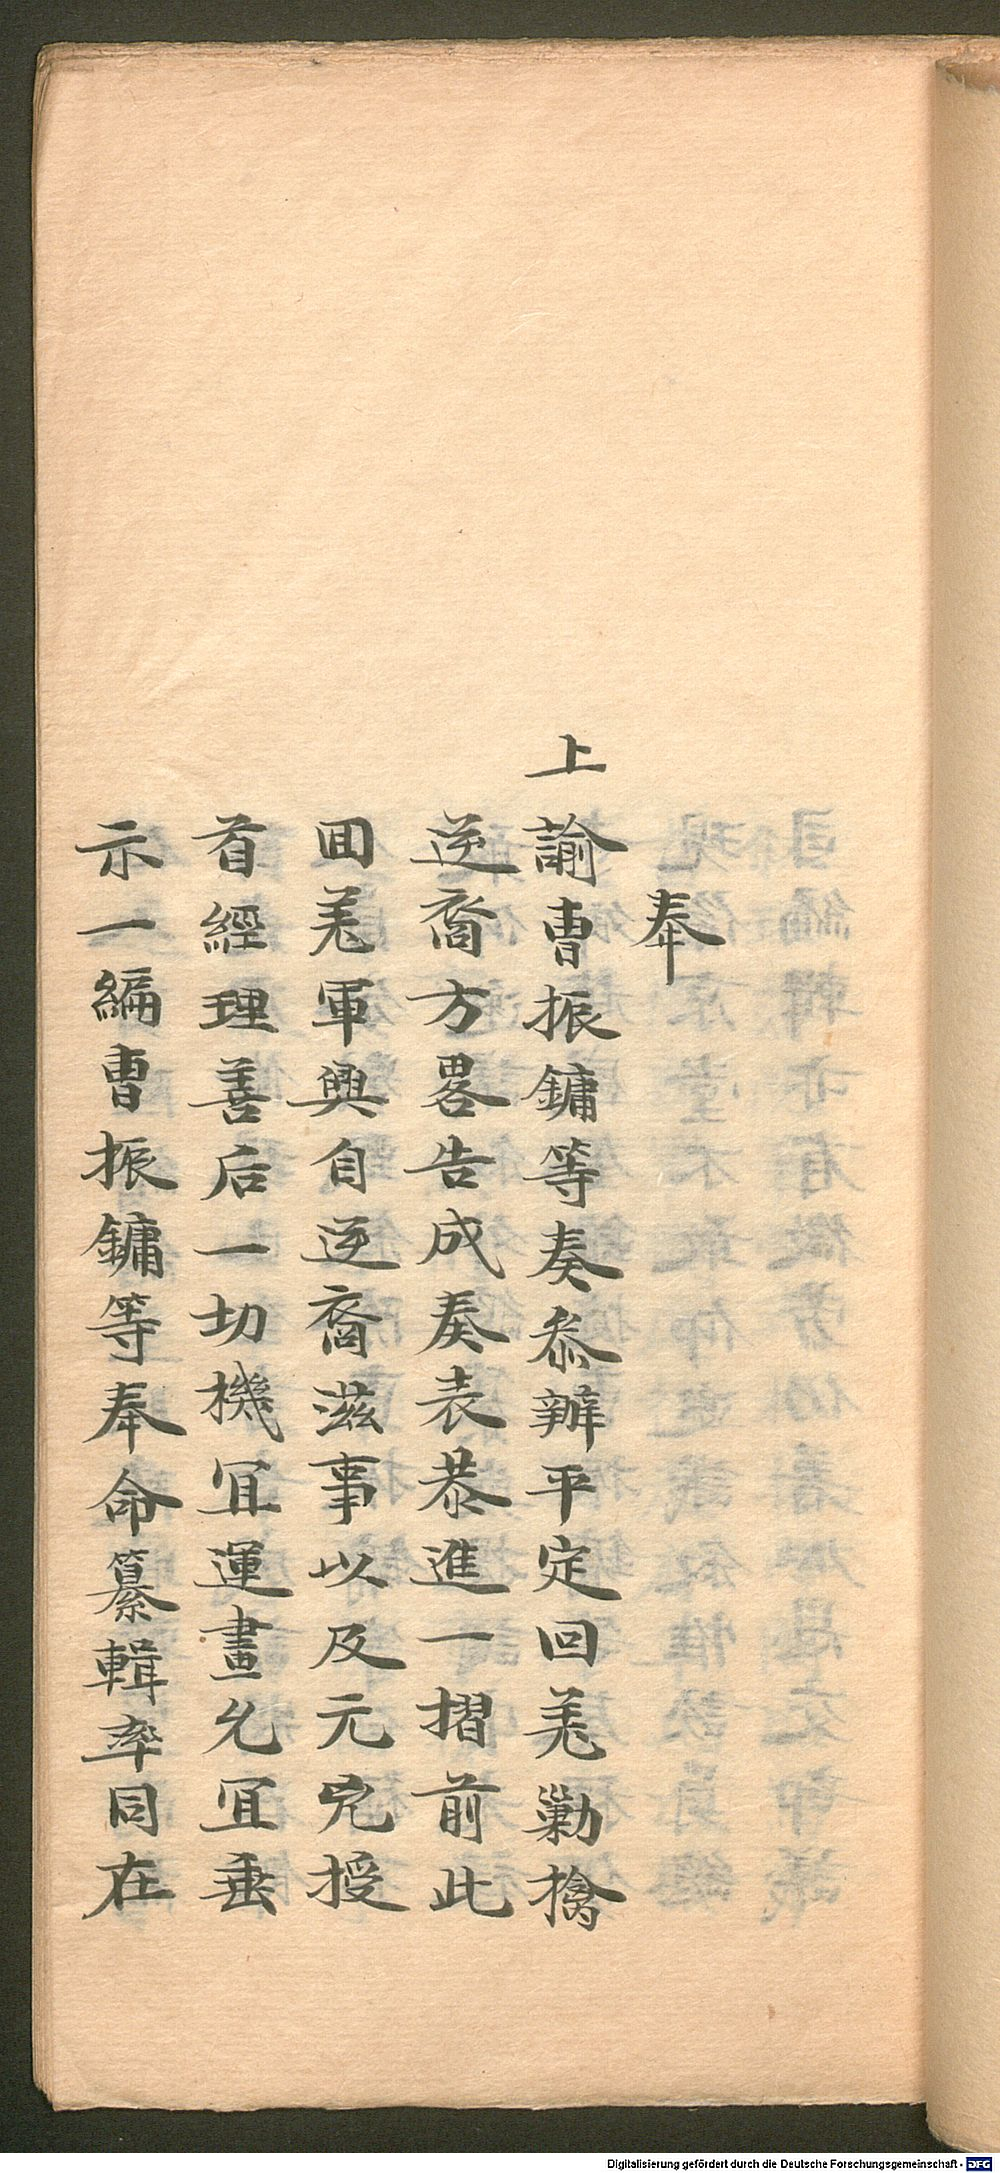 奉
上諭曹振鏞等奏恭辦平定回羌勦擒
逆裔方畧告成奏表恭進一摺前此
囬羌軍興自逆裔滋事以及元兇授
首經理善后一切機宜運畫允宜垂
示一編曹振鏞等奉命纂輯率同在
Digitalisierung gefördert durch die Deutsche Forschungsgemeinschaft - DFG